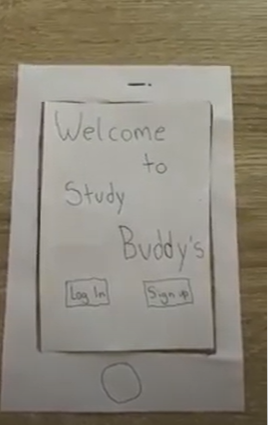 Welcome
to
Study
Buddy's
Log In
Sign up